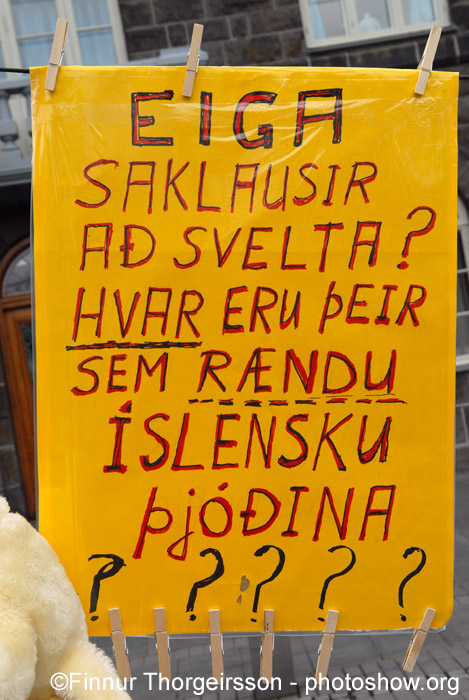 EIGA
SAKLAUSIR
AÐ SVELTA?
HVAR ERU ÞEIR
SEM RÆNDU
ÍSLENSKU
ÞJÓÐINA
? ? ? ? ?
©Finnur Thorgeirsson - photoshow.org